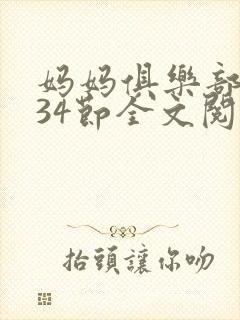 妈妈俱樂部
34節全文閱
抬頭讓你吻